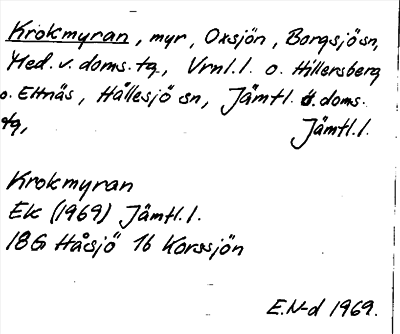 Krokmyran, myr, Oxsjön, Borgsjö sn,
Med. v. doms. tg, Vrnl. l. o. Hillersberg
o. Ettnäs, Hällesjö sn, Jämtl. ö. doms.
tg, Jämtl. l.
Krokmyran
Ek (1969) Jämtl. l.
18G Håsjö 1b Korssjön
E.N-d 1969.